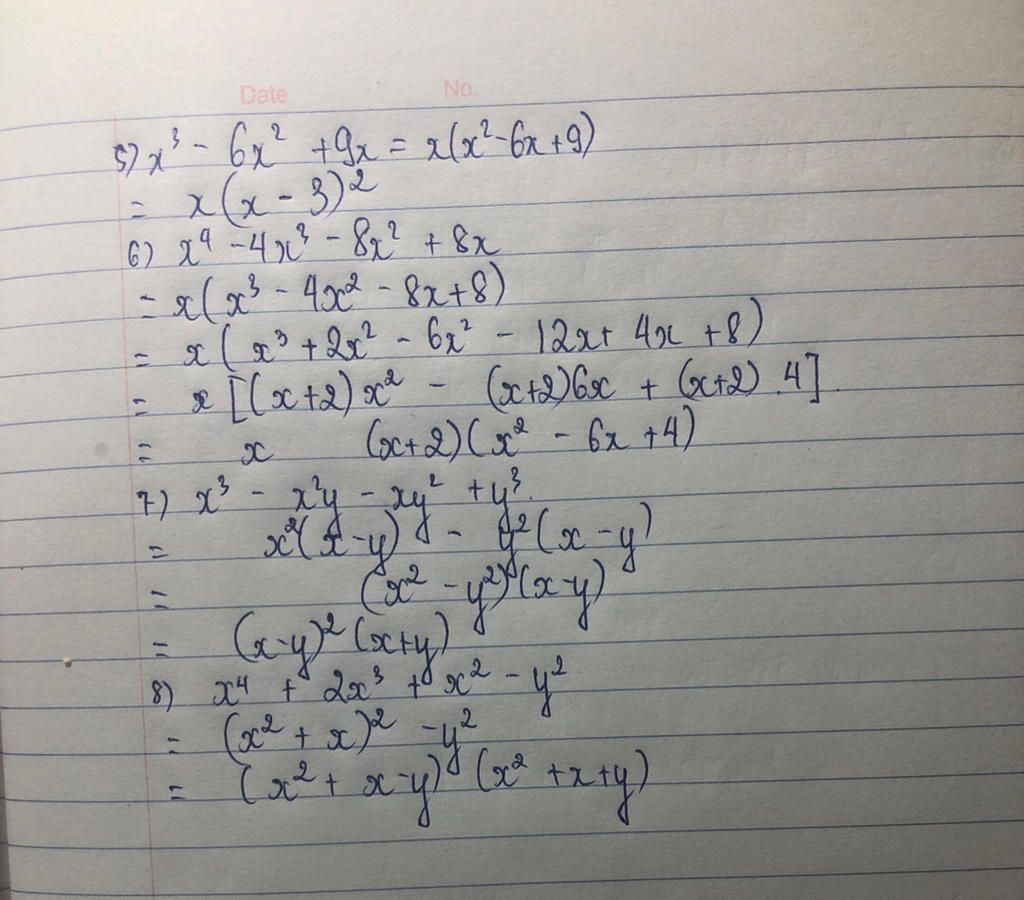 Date No.
5) x³ - 6x² + 9x = x(x² - 6x + 9)
= x(x - 3)²
6) x⁴ - 4x³ - 8x² + 8x
= x(x³ - 4x² - 8x + 8)
= x(x³ + 2x² - 6x² - 12x + 4x + 8)
= x[(x+2)x² - (x+2)6x + (x+2).4]
= x (x+2)(x² - 6x + 4)
7) x³ - x²y - xy² + y³.
= x²(x - y) - y²(x - y)
= (x² - y²)(x - y)
= (x - y)²(x + y)
8) x⁴ + 2x³ + x² - y²
= (x² + x)² - y²
= (x² + x - y)(x² + x + y)